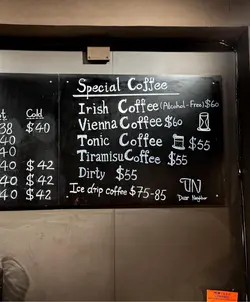 Special Coffee
Irish Coffee (Alcohol-Free) $60
Vienna Coffee $60
Tonic Coffee $55
Tiramisu Coffee $55
Dirty $55
Ice drip coffee $75-85
Dear Neighbor
Cold
38 $40
40
40
40 $42
40 $42
40 $42